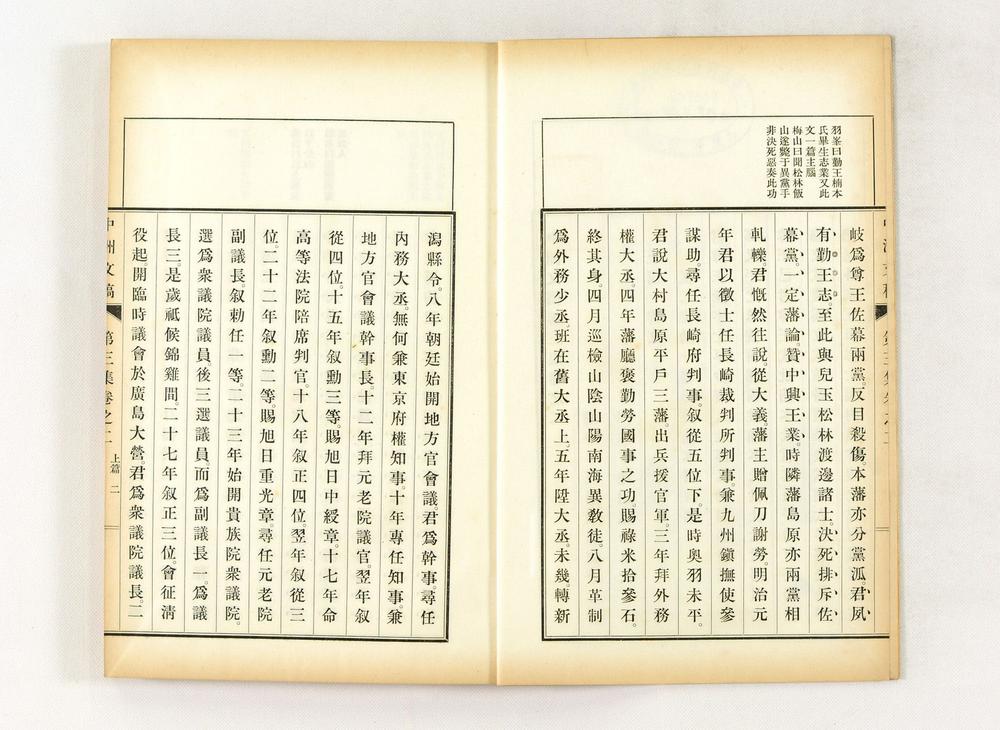 羽峯曰勤王楠本
氏畢生志業又此
文一篇主腦
梅山曰聞松林飯
山遂斃于異黨手
非決死惡奏此功
岐爲尊王佐幕兩黨。反目殺傷。本藩亦分黨派。君夙
有勤王志。至此與兒玉松林渡邊諸士。決死排斥佐
幕黨。一定藩論。贊中興王業。時隣藩島原亦兩黨相
軋轢。君慨然往說。從大義。藩主贈佩刀謝勞。明治元
年君以徵士任長崎裁判所判事。兼九州鎭撫使參
謀助。尋任長崎府判事。叙從五位下。是時奥羽未平。
君說大村島原平戶三藩。出兵援官軍。三年拜外務
權大丞。四年藩廳褒勤勞國事之功。賜祿米拾參石。
終其身。四月巡檢山陰山陽南海異敎徒。八月革制
爲外務少丞。班在舊大丞上。五年陞大丞。未幾。轉新
潟縣令。八年朝廷始開地方官會議。君爲幹事。尋任
內務大丞。無何兼東京府權知事。十年專任知事。兼
地方官會議幹事長。十二年拜元老院議官。翌年叙
從四位。十五年叙勳三等。賜旭日中綬章。十七年命
高等法院陪席判官。十八年叙正四位。翌年叙從三
位。二十二年叙勳二等。賜旭日重光章。尋任元老院
副議長。叙勅任一等。二十三年始開貴族院衆議院。
選爲衆議院議員。後三選議員。而爲副議長一。爲議
長三。是歲祇候錦雞間。二十七年叙正三位。會征淸
役起。開臨時議會於廣島大營。君爲衆議院議長。二
中洲文稿 第三集卷之二 上篇 二